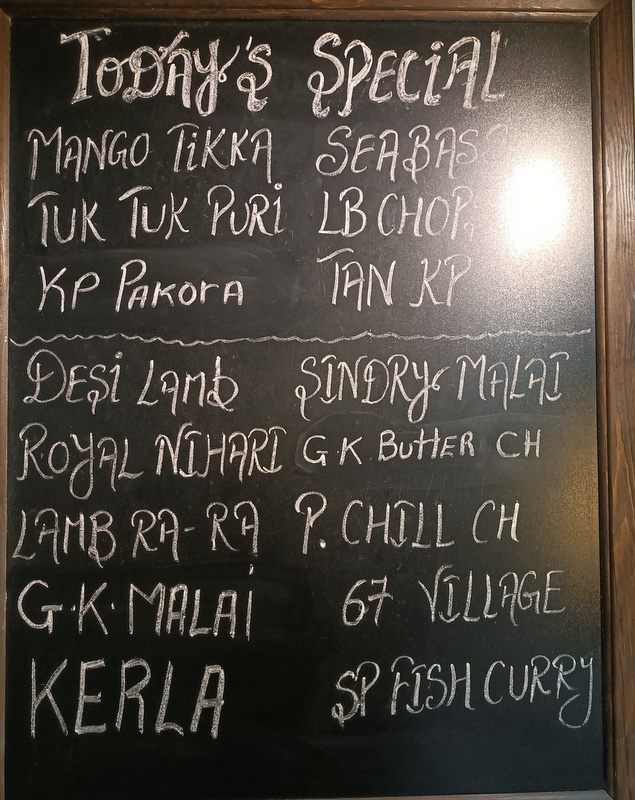 Today's Special
MANGO TIKKA SEABASS
TUK TUK PURI LB CHOP
KP Pakora TAN KP
DESI LAMB SINDRY MALAI
ROYAL NIHARI G.K. BUTTER CH
LAMB RA-RA P. CHILL CH
G.K. MALAI 67 VILLAGE
KERLA SP FISH CURRY